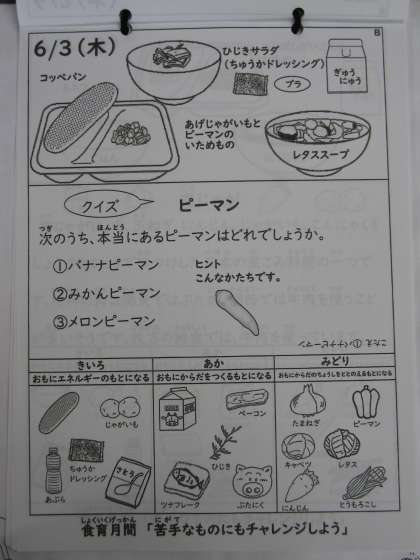 B
6/3(木)
コッペパン
ひじきサラダ
(ちゅうかドレッシング)
プラ
ぎゅう
にゅう
あげじゃがいもと
ピーマンの
いためもの
レタススープ
クイズ
ピーマン
つぎ ほんとう
次のうち、本当にあるピーマンはどれでしょうか。
①バナナピーマン
②みかんピーマン
③メロンピーマン
ヒント
こんなかたちです。
こたえ ①バナナピーマン
きいろ
あか
みどり
おもにエネルギーのもとになる
おもにからだをつくるもとになる
おもにからだのちょうしをととのえるもとになる
じゃがいも
ちゅうか
ドレッシング
あぶら
さとう
ベーコン
ひじき
ツナフレーク
ぶたにく
たまねぎ
ピーマン
キャベツ
レタス
にんじん
とうもろこし
しょくいくげっかん にがて
食育月間 「苦手なものにもチャレンジしよう」